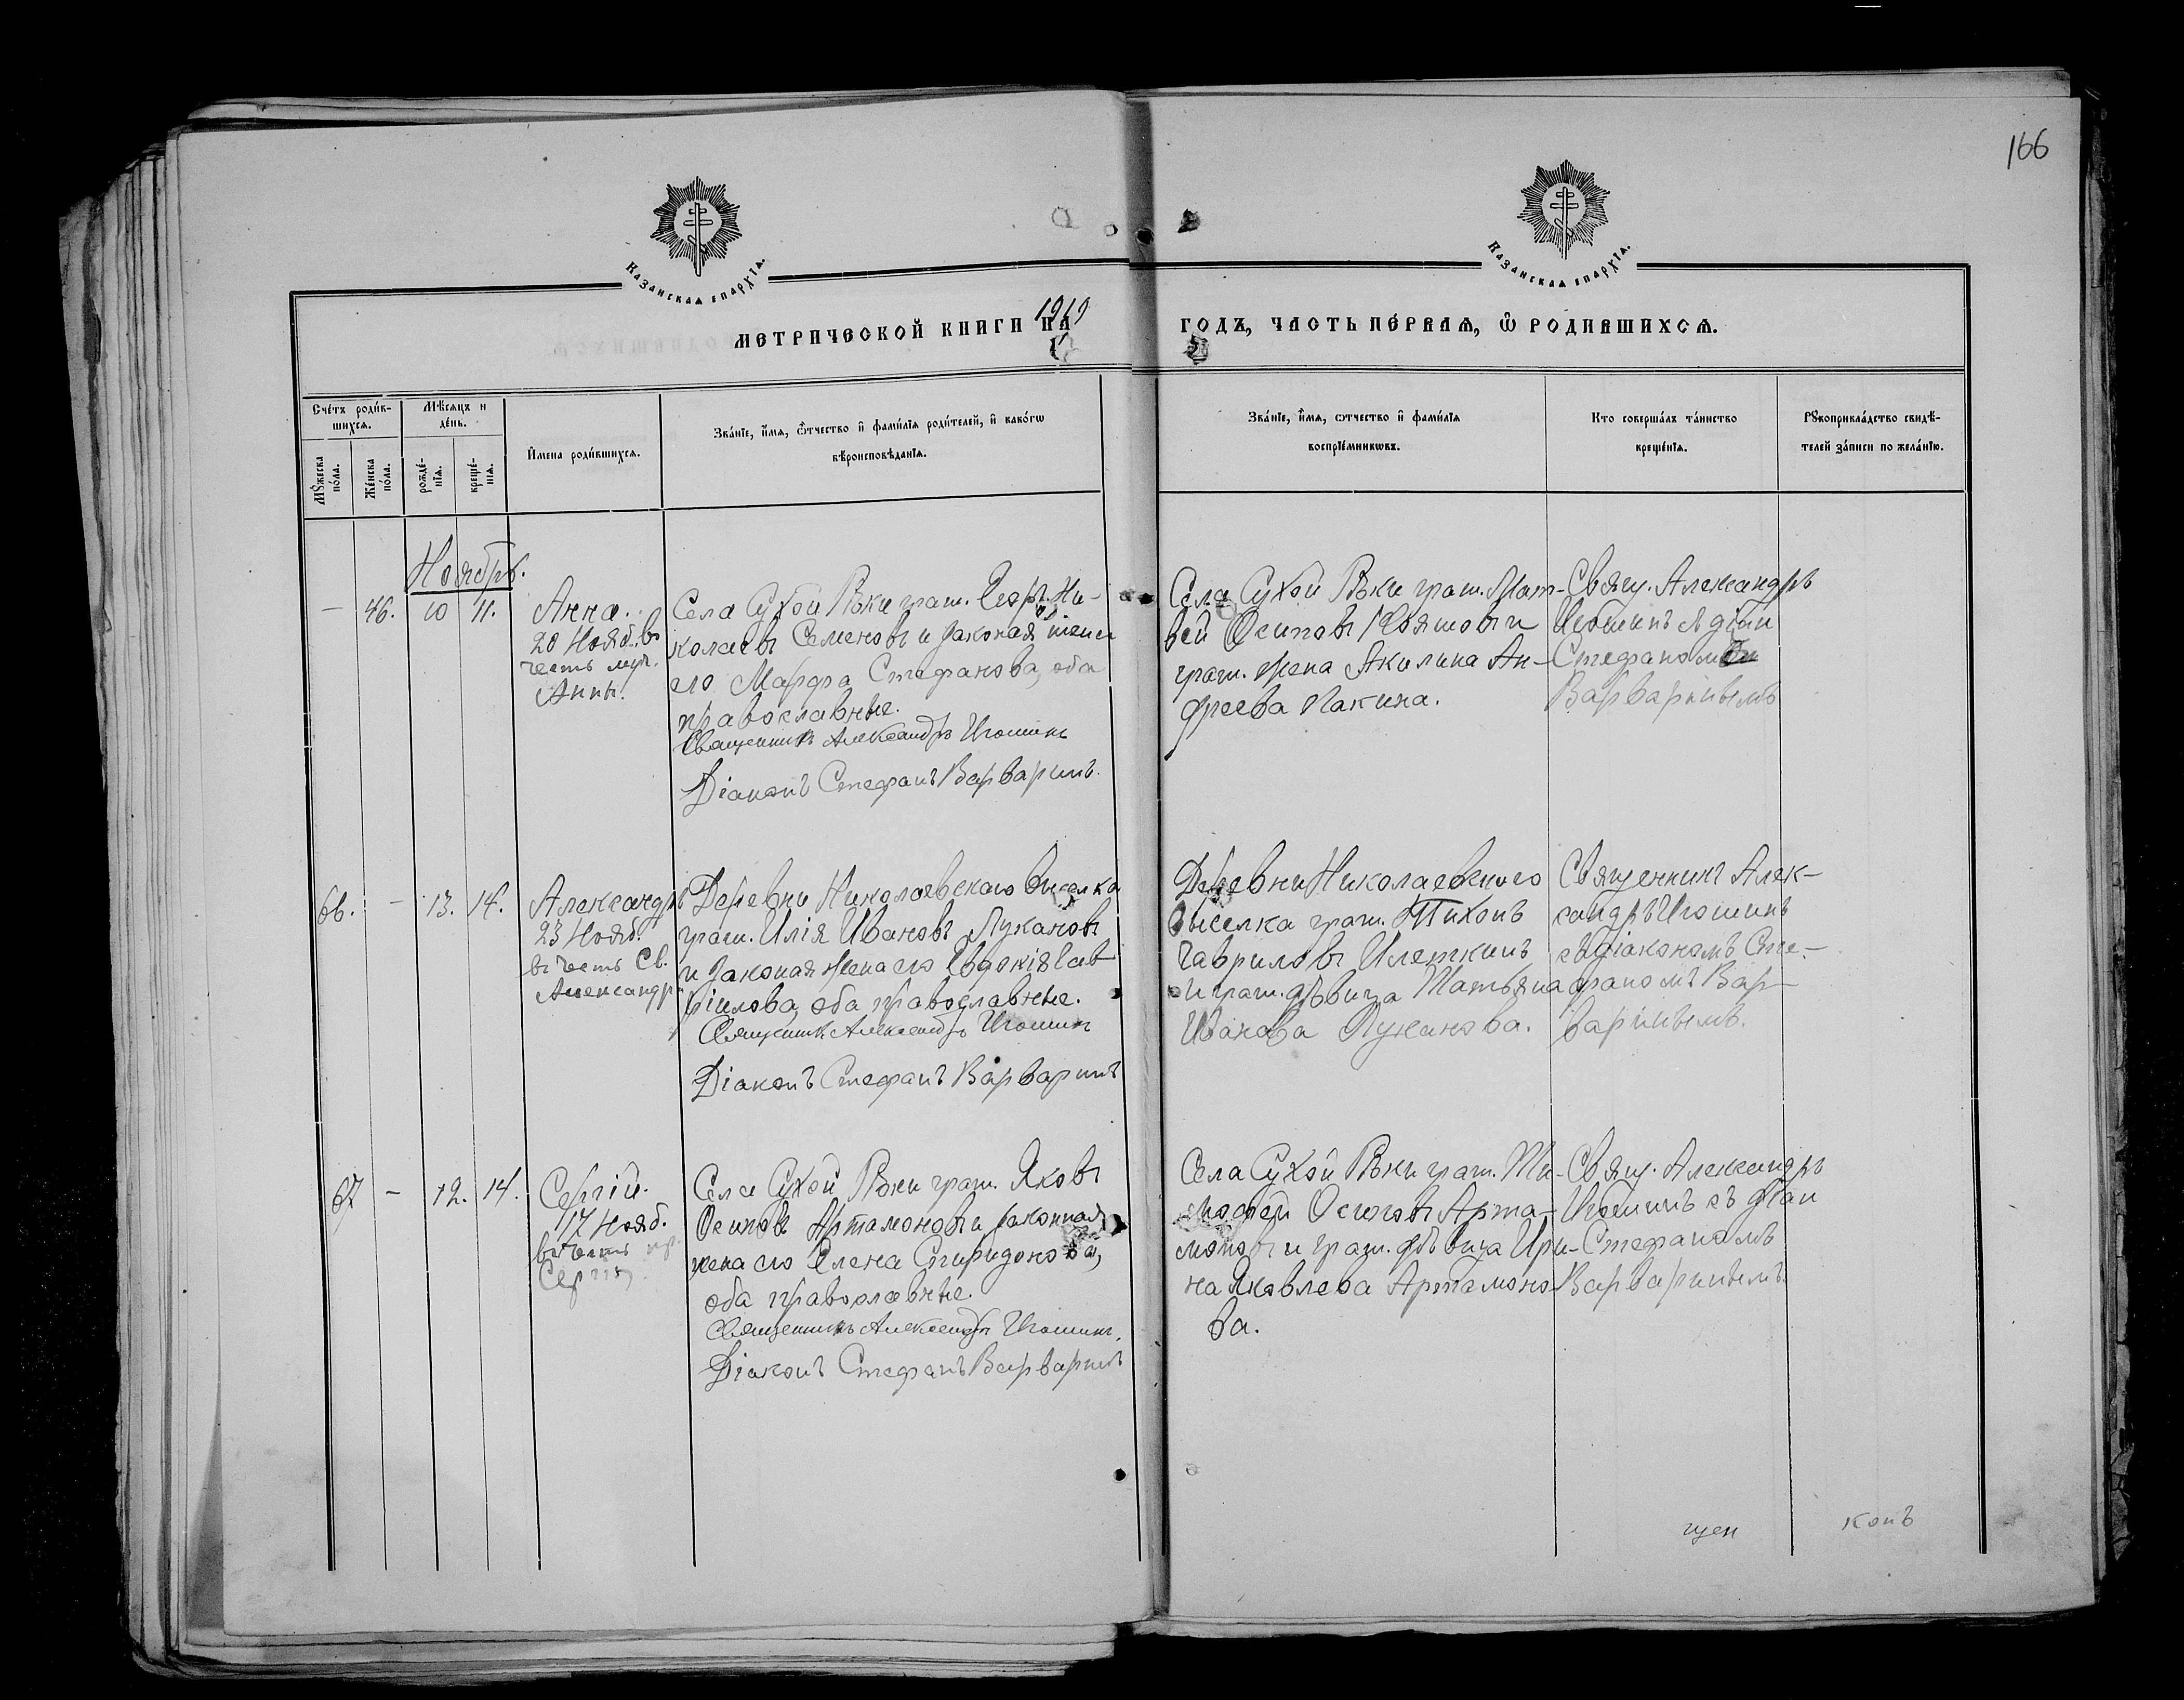 166
КАЗАНСКАЯ ЕПАРХІЯ.
КАЗАНСКАЯ ЕПАРХІЯ.
МЕТРИЧЕСКОЙ КНИГИ НА 1919 ГОДЪ, ЧАСТЬ ПЕ́РВАЯ, Ѡ РОДИВШИХСЯ.
Сче́тъ роди́в-
шихся.
Мꙋ́жеска по́ла.
Же́нска по́ла.
Мѣ́сяцъ и
де́нь.
рожде́-
нія.
креще́-
нія.
И́мена роди́вшихся.
Зва́нїе, и́мя, ѻ́тчество и҆ фами́лїя роди́телей, и҆ како́гѡ
вѣроисповѣ́данїя.
Зва́нїе, и҆́мя, ѻтчество и҆ фами́лїя
воспрїе́мникѡвъ.
Кто соверша́лъ та́инство
креще́нїя.
Рꙋкоприкла́дство свидѣ́-
телей за́писи по жела́нїю.
Ноябрь.
— 46. 10 11.
Анна.
20 Нояб. въ
честь муч.
Анны.
Села Сухой Рѣки граж. Георг. Ни-
колаевъ Семеновъ и законая жена
его Марфа Стефанова, оба
православные.
Священникъ Александръ Игошинъ
Діаконъ Стефанъ Варваринъ.
Села Сухой Рѣки граж. Мат-
вей Осиповъ и
граж. жена Акилина Ан-
дреева Пакина.
Свящ. Александръ
Игошинъ съ діак
Стефаномъ
Варваринымъ
66. — 13. 14.
Александръ
23 Нояб.
въ честь Св.
Александра
Деревни Николаевскаго Выселка
граж. Илія Ивановъ Лукановъ
и законая жена его Евдокія Гав-
ріилова, оба православные.
Священникъ Александръ Игошинъ
Діаконъ Стефанъ Варваринъ
Деревни Николаевскаго
Выселка граж. Тихонъ
Гавриловъ Илеткинъ
и граж. дѣвица Татьяна
Иванова Луканова.
Священникъ Алек-
сандръ Игошинъ
съ діакономъ Сте-
фаномъ Вар-
варинымъ.
67 — 12. 14.
Сергій.
17 Нояб.
въ честь пр.
Сергія
Села Сухой Рѣки граж. Яковъ
Осиповъ Артамоновъ и законная
жена его Елена Спиридонова,
оба православные.
Священникъ Александръ Игошинъ.
Діаконъ Стефанъ Варваринъ
Села Сухой Рѣки граж. Ти-
мофей Осиповъ Арта-
моновъ и граж. дѣвица Ири-
на Яковлева Артамоно-
ва.
Свящ. Александръ
Игошинъ съ діак
Стефаномъ
Варваринымъ.
щен конъ